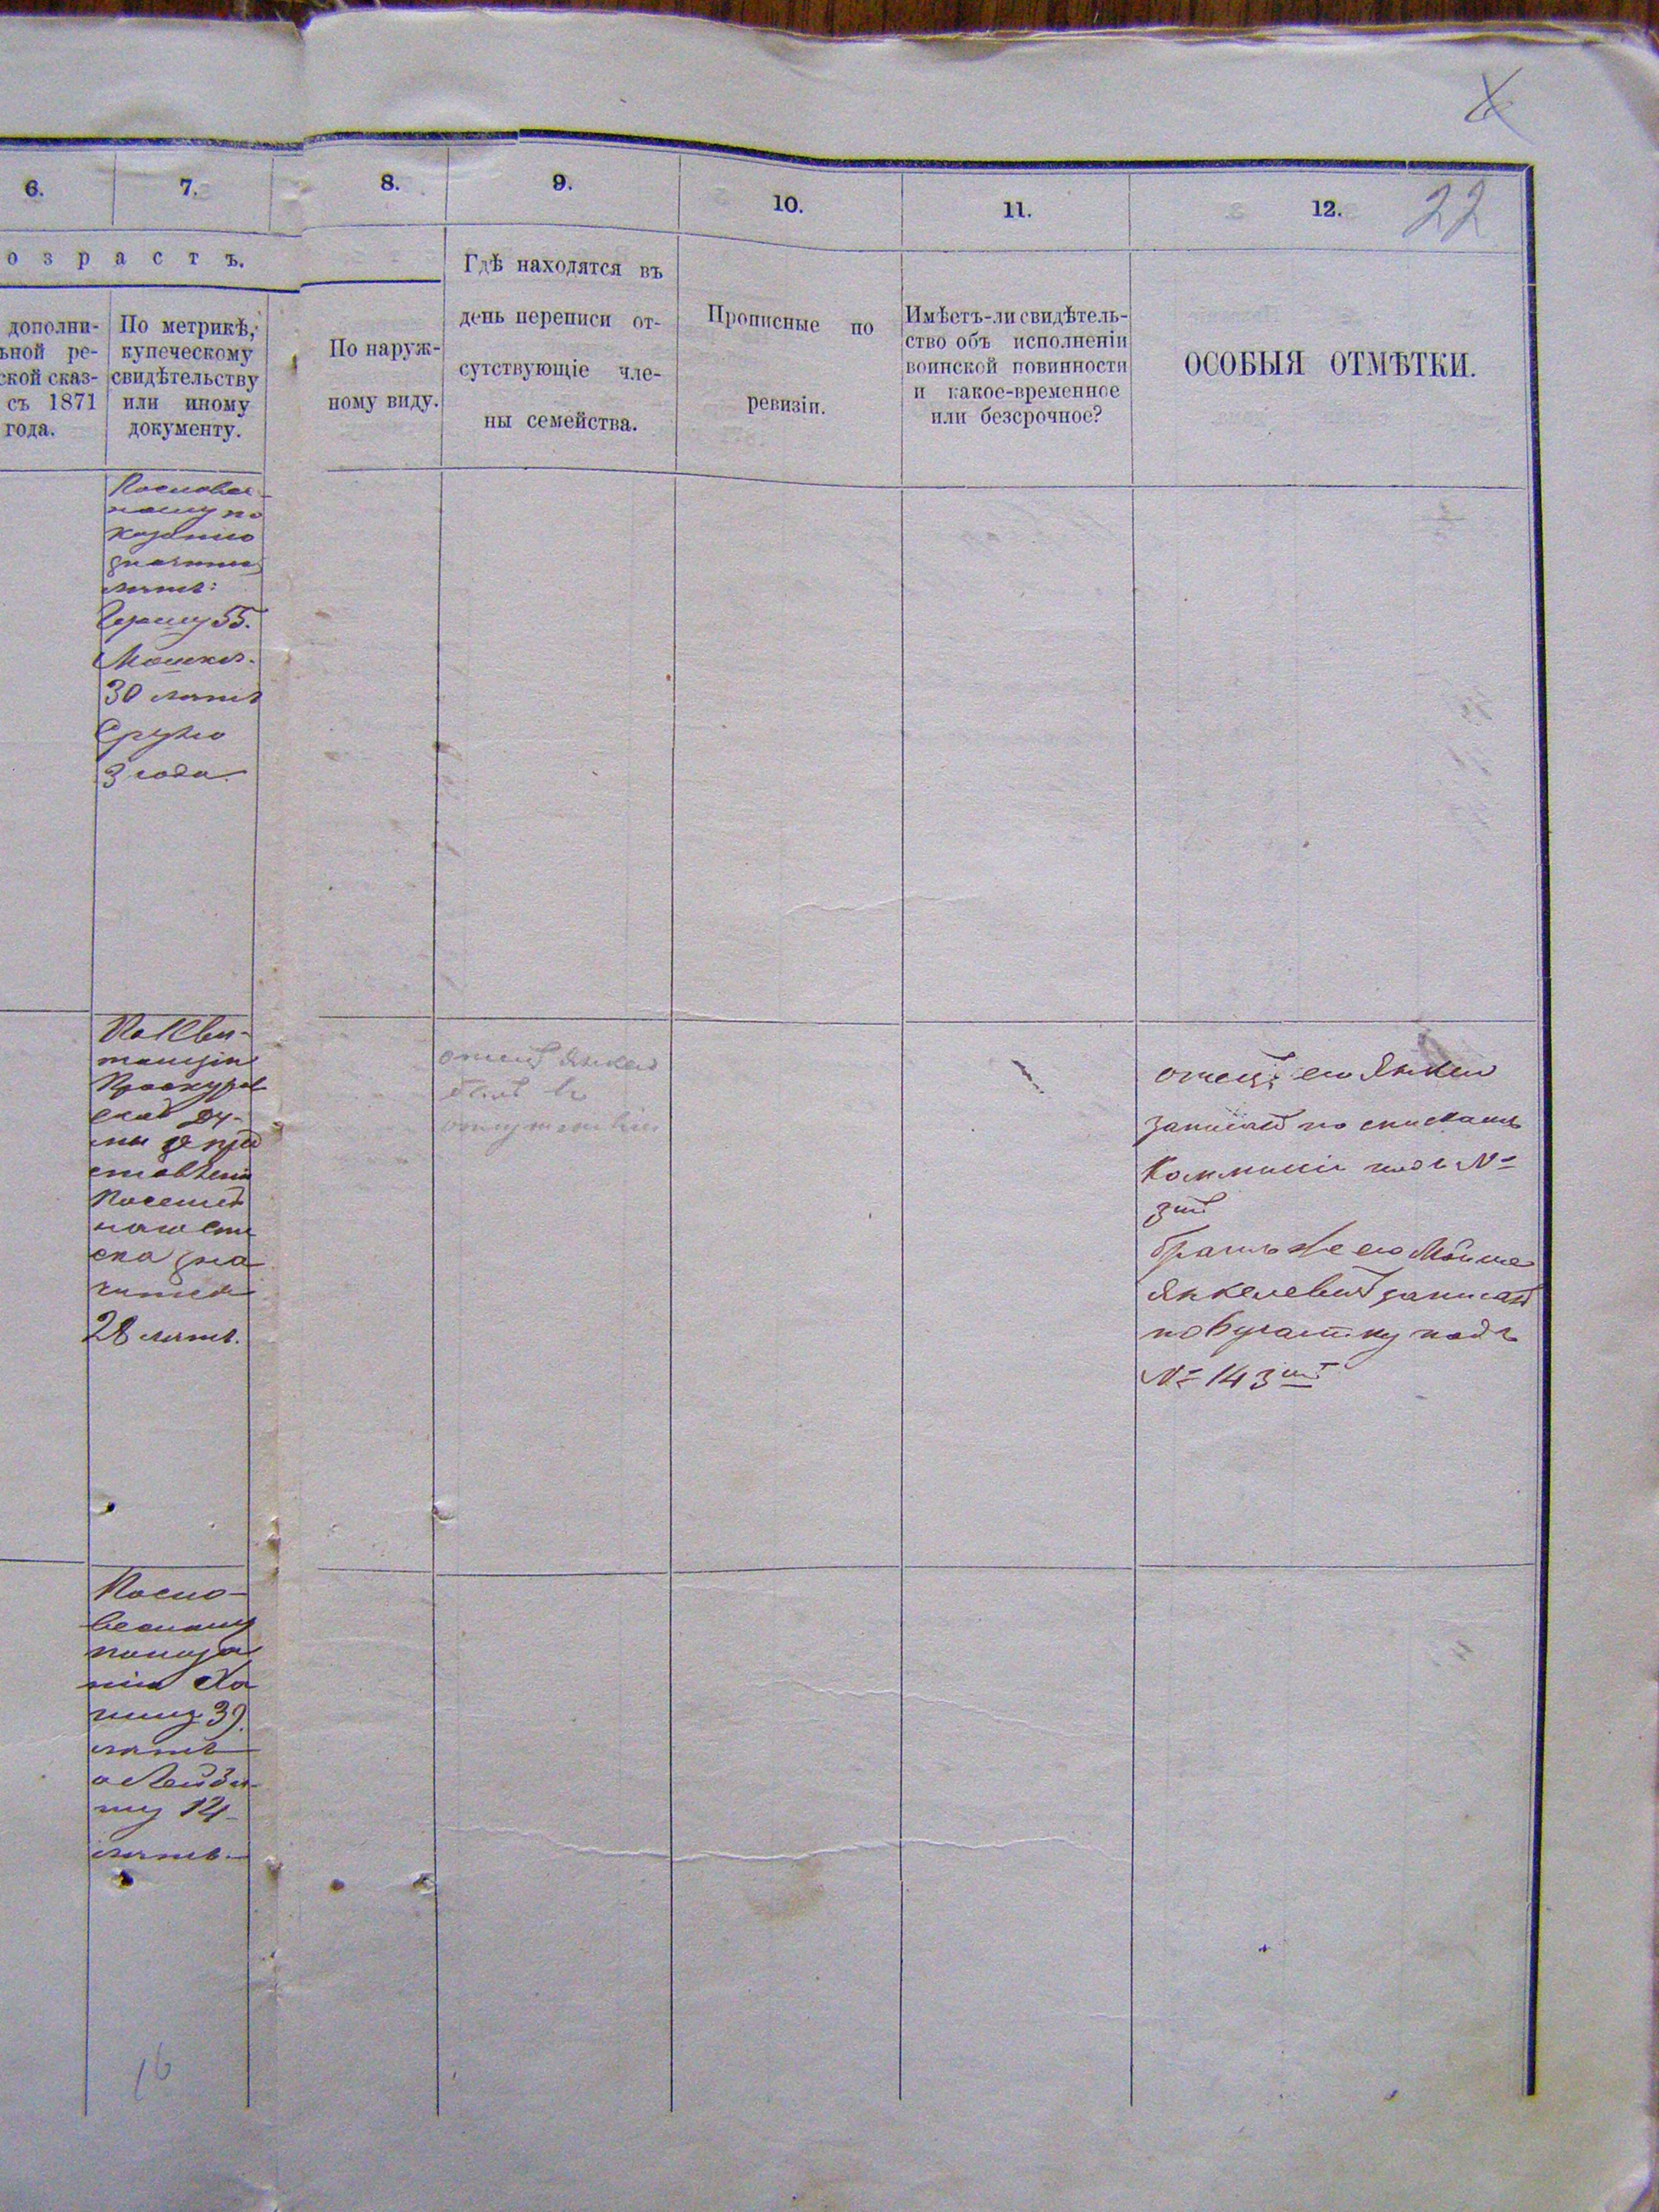 22
6.
7.
8.
9.
10.
11.
12.
озрастъ.
дополни-
ьной ре-
ской сказ-
съ 1871
года.
По метрикѣ,
купеческому
свидѣтельству
или иному
документу.
По наруж-
ному виду.
Гдѣ находятся въ
день переписи от-
сутствующіе чле-
ны семейства.
Прописные по
ревизіи.
Имѣетъ-ли свидѣтель-
ство объ исполненіи
воинской повинности
и какое-временное
или безсрочное?
ОСОБЫЯ ОТМѢТКИ.
Пословес-
ному по
казанію
значится
лѣтъ:
55.
Мошко-
30 лѣтъ
Срулю
3 года
По Кви-
танціи
Проскуров
ской Ду-
мы о пред
ставленіи
Посемей
наго спи
ска зна
чится
28 лѣтъ.
отецъ Янкель
въ
отецъ его Янкель
записанъ по спискамъ
Коммисіи подъ №
братъ же его Мошко
Янкелевъ записанъ
по участку подъ
№ 143
Посло-
весному
показа
нію Ха
иму 39
лѣтъ
а Лейзе-
ру 14
лѣтъ
16